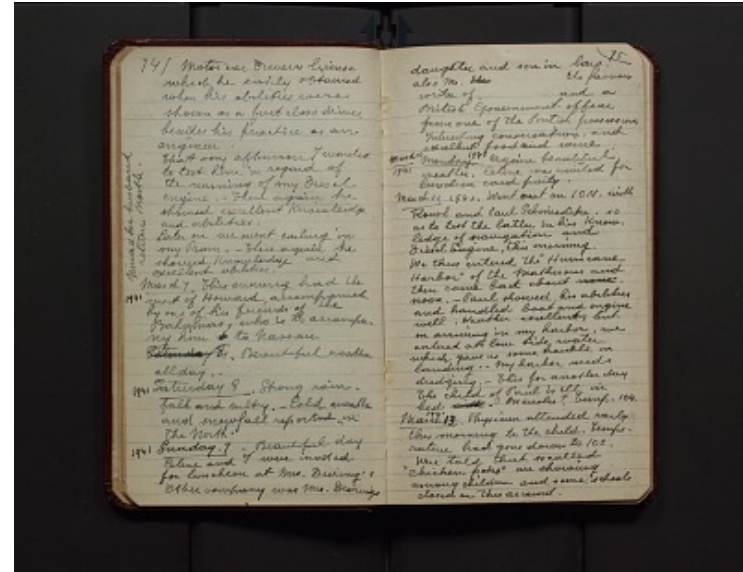 74/ Motor car Drivers License
which he easily obtained
when his abilities were
shown as a first class driver
besides his practice as an
engineer.
That very afternoon I wanted
to test him in regard of
the running of my Diesel
engine. - Then again he
showed excellent Knowledge
and abilities.
Later on we went sailing in
my Pram. - There again he
showed Knowledge and
excellent abilities.
March 7. This evening had the
visit of Howard, accompanied
by one of his friends of the
Bahamas, who is to accompa-
ny him to Nassau
8. Beautiful weather
all day..
1941 Saturday 8. Strong rain-
fall and sultry. - Cold weather
and snowfall reported in
the North.
1941 Sunday. 9. Beautiful day
and I were invited
for luncheon at Mrs. Deering's
Other company was Mrs. Deerings
75
daughter and son in law,
also Mr. the famous
writer of and a
British Government officer
from one of the British possessions
Interesting conversations, and
excellent food and wine
Monday. Again beautiful
1941 weather. was invited for
card party.
March 12. 1941. Went out on with
and Paul so
as to test the latter in his Know-
ledge of navigation and
Diesel Engine, this morning.
We thus entered the "Hurricane
Harbor" of the and
then came back about
noon. - Paul showed his abilities
and handled boat and engine
well. Weather excellent, but
on arriving in my harbor, we
entered at low tide, water
which gave us some trouble in
landing. - My harbor needs
dredging. - This for another day
The child of Paul is ill in
bed Measles? Temp. 104.
March 13. Physician attended early
this morning to the child. Tempe-
rature had gone down to 102.
Were told that
"chicken pocks" are showing
among children and some schools
closed on this account.